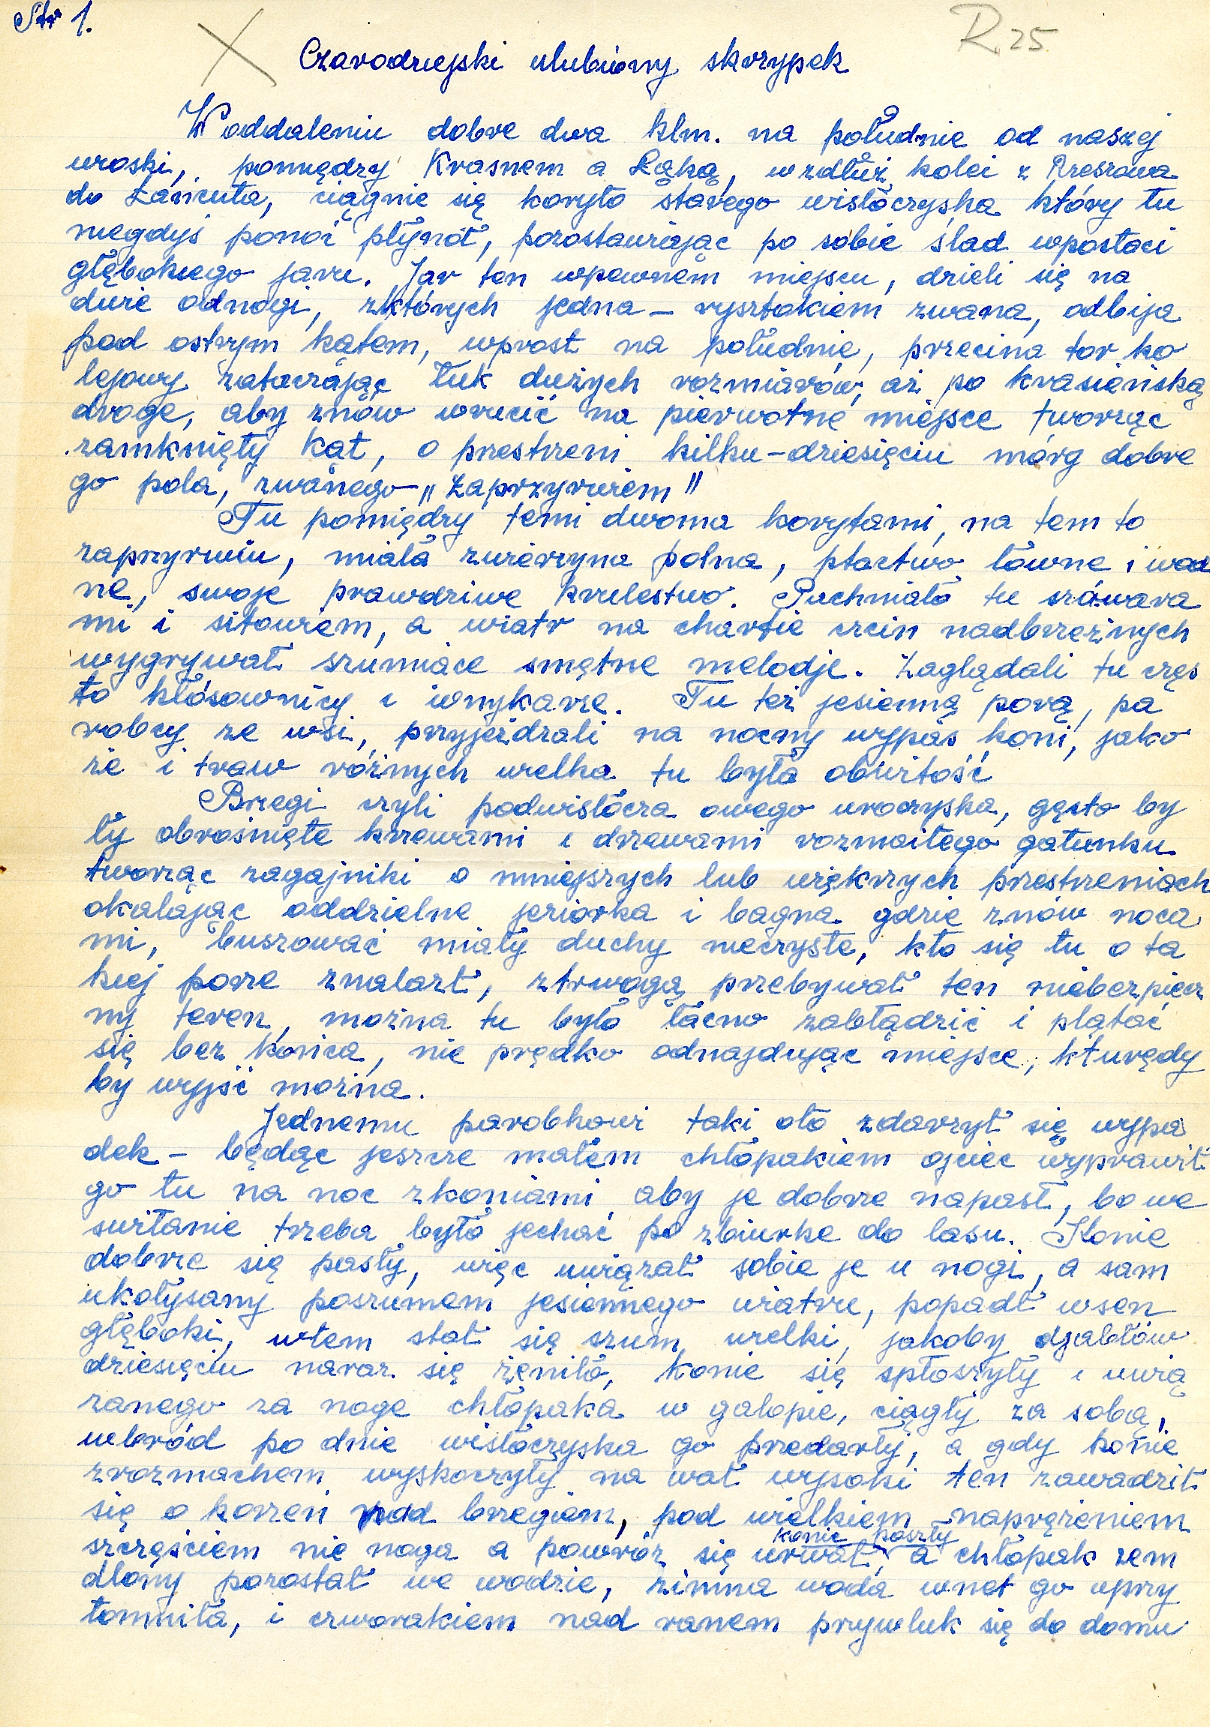 Str 1.
R. 25
Czarodziejski ulubiony skrzypek
W oddaleniu dobre dwa klm. na południe od naszej
wioski, pomiędzy Krasnem a Łąką, wzdłuż kolei z Rzeszowa
do Łańcuta, ciągnie się koryto starego wisłoczyska który tu
niegdyś ponoć płynoł, pozostawiając po sobie ślad wpostaci
głębokiego jaru. Jar ten wpewnem miejscu, dzieli się na
dwie odnogi, zktórych jedna – rysztokiem zwana, odbija
pod ostrym kątem, wprost na południe, przecina tor ko
lejowy zataczając łuk dużych rozmiarów, aż po krasieńską
drogę, aby znów wrucić na pierwotne miejsce tworząc
zamknięty kąt, o przestrzeni kilku-dziesięciu mórg dobre
go pola, zwanego „Zaprzyrwiem"
Tu pomiędzy temi dwoma korytami, na tem to
zaprzyrwiu, miała zwierzyna polna, ptactwo łowne i wod
ne, swoje prawdziwe krulestwo. Puchniało tu szuwara
mi i sitowiem, a wiatr na charfie trzcin nadbrzeżnych
wygrywał szumiące smętne melodje. Zaglądali tu częs
to kłósownicy i wnykarze. Tu też jesienną porą, pa
robcy ze wsi, przyjeżdzali na nocny wypas koni, jako
że i traw różnych wielka tu była obwitość
Brzegi czyli podwisłocza owego uroczyska, gęsto by
ły obrośnięte krzewami i drzewami rozmaitego gatunku
tworząc zagajniki o mniejszych lub większych przestrzeniach
okalając oddzielne jeziorka i bagna gdzie znów noca
mi, buszować miały duchy nieczyste, kto się tu o ta
kiej porze znalazł, ztrwogą przebywał ten niebezpiecz
ny teren, można tu było łacno zabłądzić i plątać
się bez końca, nie prędko odnajdując miejsce, kturędy
by wyjść można.
Jednemu parobkowi taki oto zdarzył się wypa
dek – będąc jeszcze małem chłopakiem ojciec wyprawił
go tu na noc zkoniami, aby je dobrze napasł, bo we
świtanie trzeba było jechać po zbiurke do lasu. Konie
dobrze się pasły, więc uwiązał sobie je u nogi, a sam
ukołysany poszumem jesiennego wiatru, popadł wsen
głęboki, wtem stał się szum wielki, jakoby djabłów
dziesięciu naraz się żeniło, konie się spłoszyły i uwią
zanego za nogę chłopaka w galopie, ciągły za sobą,
wbród po dnie wisłoczyska go przedarły, a gdy konie
zrozmachem wyskoczyły na wał wysoki ten zawadził
się o korzeń nad brzegiem, pod wielkiem naprężeniem
szczęściem nie noga a powróz się urwał, konie poszły a chłopak zem
dlony pozostał we wodzie, zimna woda wnet go oprzy
tomniła, i czworakiem nad ranem przywluk się do domu